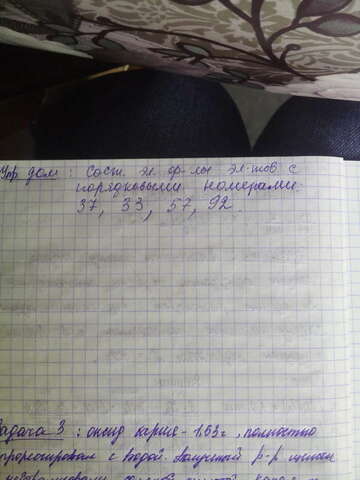 Упр дом: Сост. эл. ф-лы эл-тов с
порядковыми номерами:
37, 33, 57, 92.
Задача 3: оксид калия - 1,63 г, полностью
прореагировал с водой. Полученный р-р